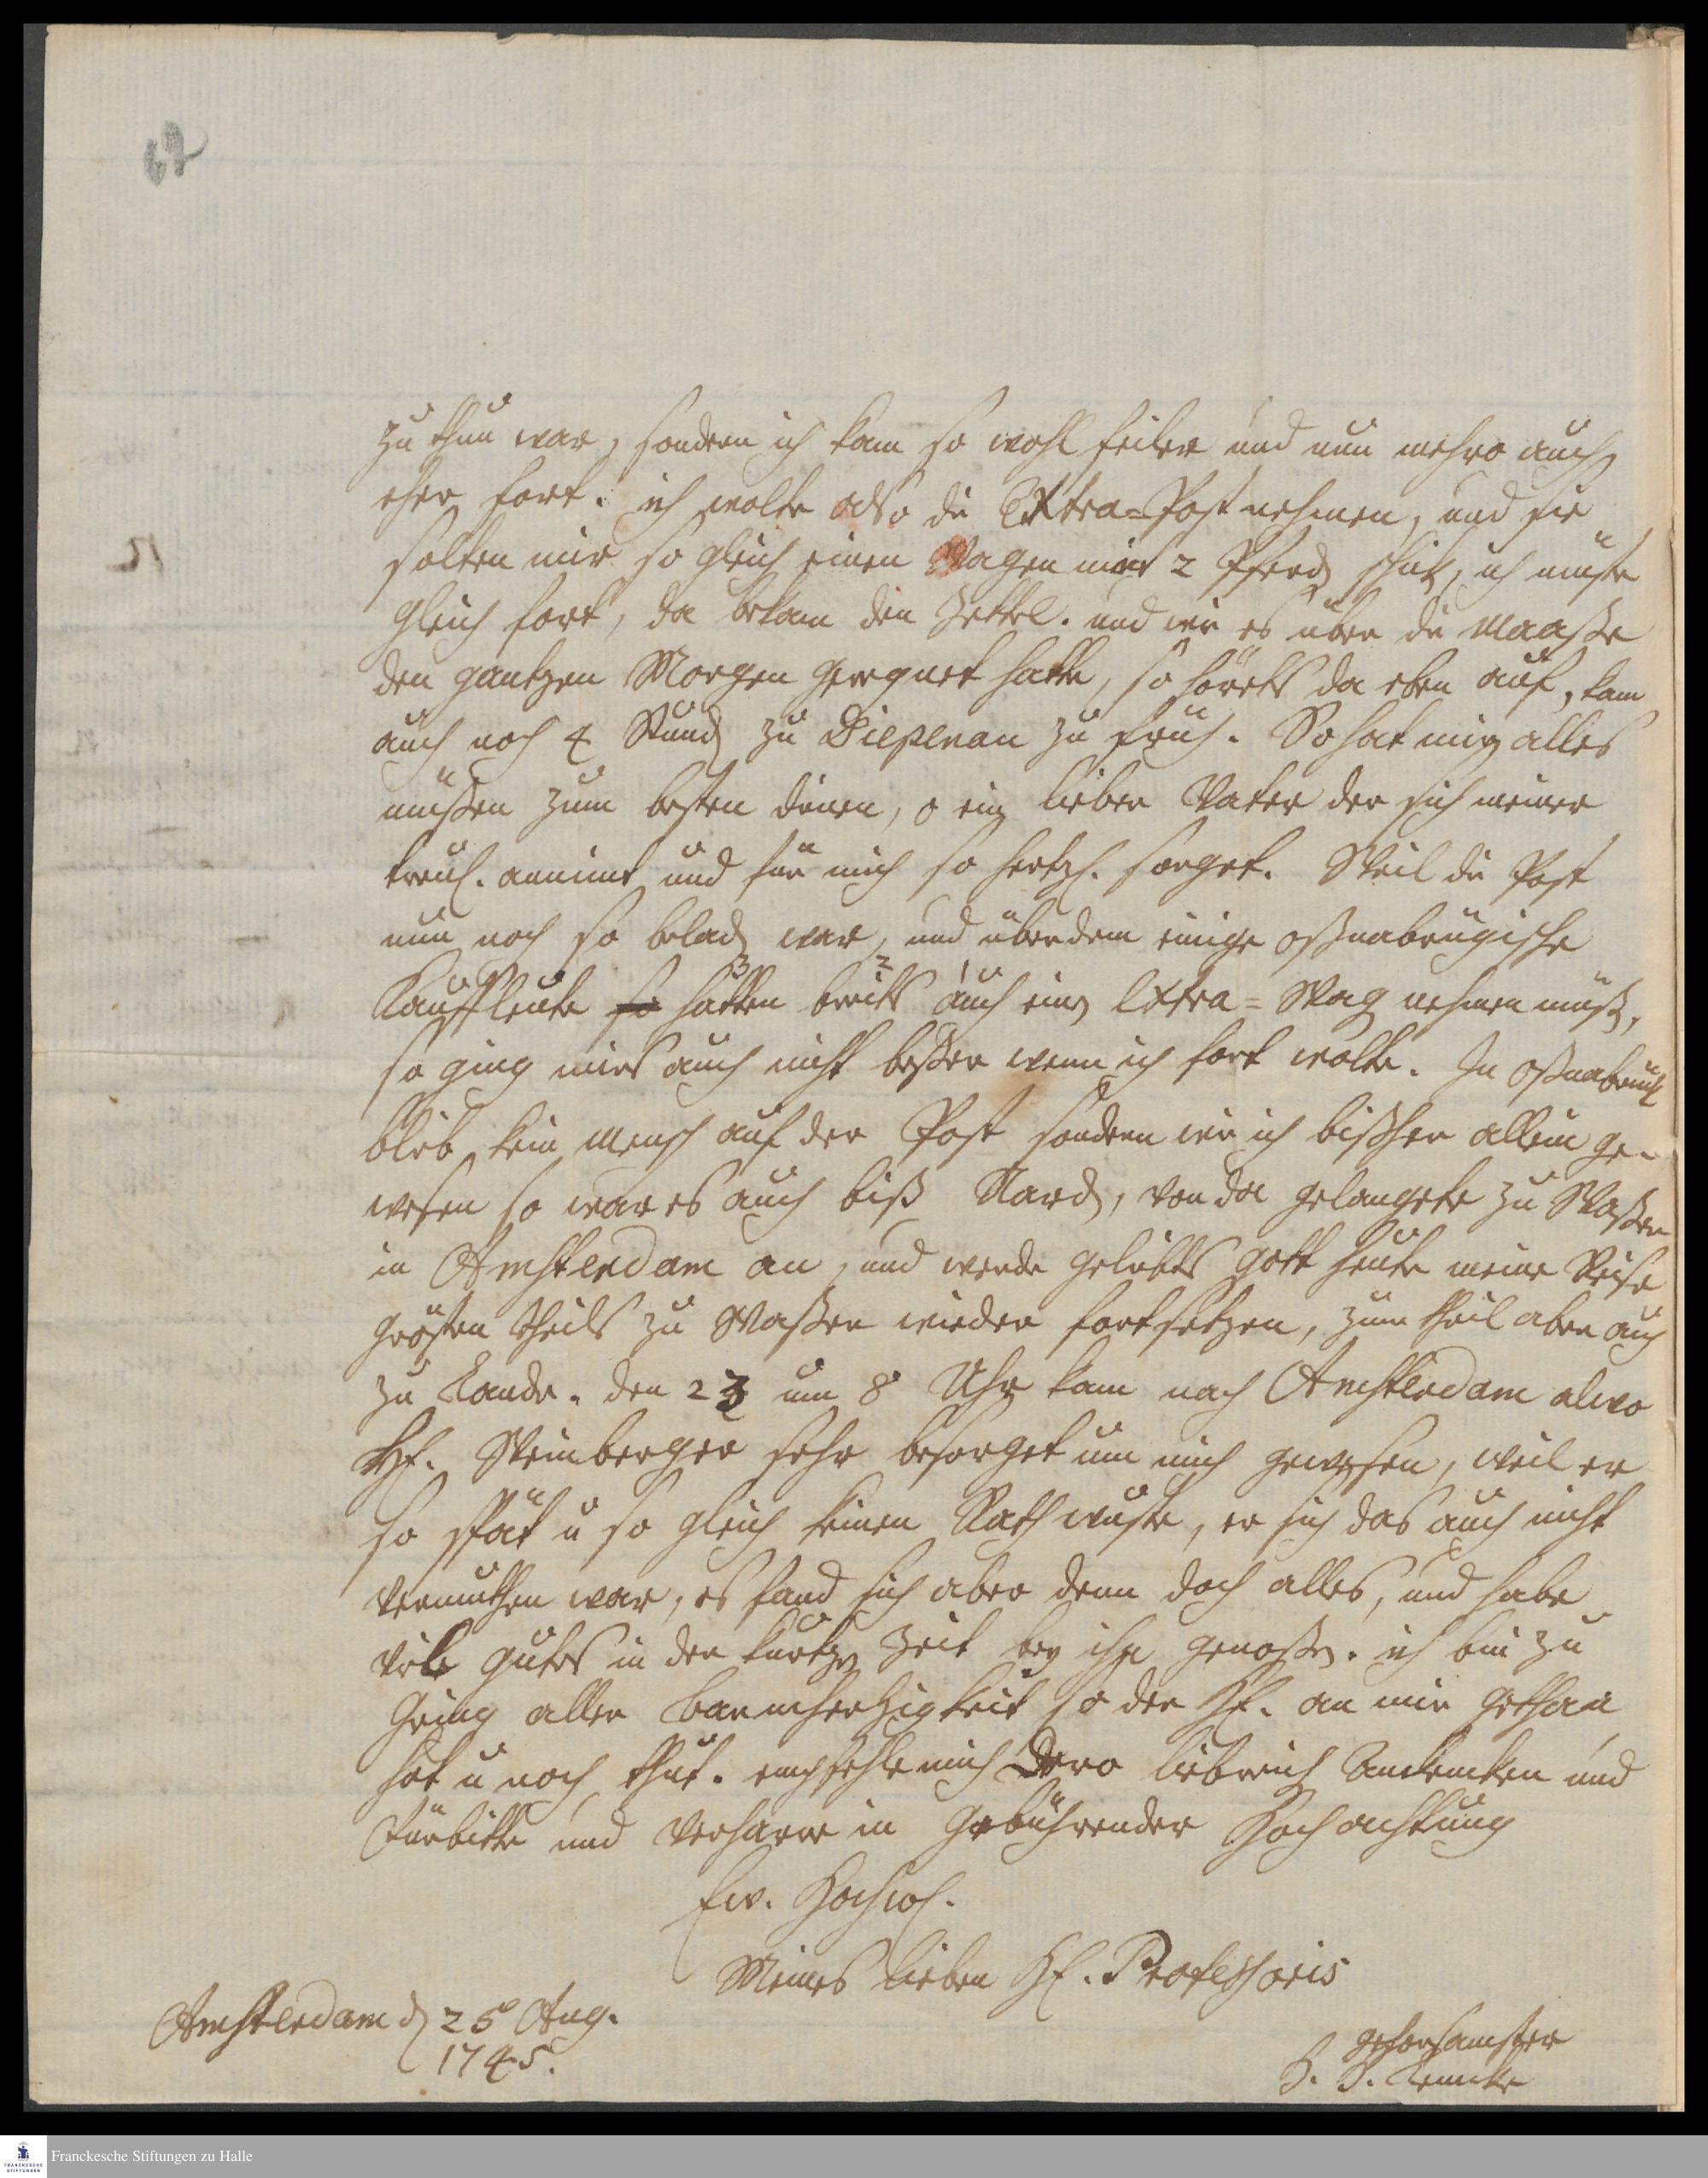 62
zu thun war, sondern ich kam so wohl feiler und nun mehro auch
eher fort. ich wolte also die Extra-Post nehmen, und sie
solten mir so gleich einen Wagen mit 2 Pferd schick, ich müste
gleich fort, da bekam den Zettel. und wie es über die Maaße
den gantzen Morgen geregnet hatte, so hörets da eben auf, kam
auch noch 4 Stund zu Diepenau zu früh. So hat mir alles
müßen zum besten dienen, o ein lieber Vater der sich meiner
treul. annimt und für mich so hertzl. sorget. Weil die Post
nun noch so belad war, und überdem einige oßnabrügische
Kauffleute hatten 3 bereits 2 auch 1 einen Extra-Wag nehmen müß,
so ging mirs auch nicht beßer wenn ich fort wolte. In Oßnabrück
blieb kein Mensch auf der Post sondern wie ich bißher allein ge-
wesen so war es auch biß Nard, von da gelangete zu Waßer
in Amsterdam an, und werde geliebts Gott heute meine Reise
grösten theils zu Waßer wieder fortsetzen, zum theil aber auch
zu Lande. den 23 um 8 Uhr kam nach Amsterdam alwo
Hr. Steinberger sehr besorget um mich gewesen, weil er
so spät u so gleich keinen Rath wuste, er sich das auch nicht
vermuthen war, es fand sich aber denn doch alles, und habe
viele gutes in der kurtzen Zeit bey ihm genoßen. ich bin zu
gering aller Barmhertzigkeit so der H. an mir gethan
hat u noch thut. empfehle mich Dero liebreich Andencken und
Fürbitte und verharre in gebührender Hochachtung
Ew. Hochw.
Meines lieben H. Professoris
Amsterdam d 25 Aug.
1745.
gehorsamster